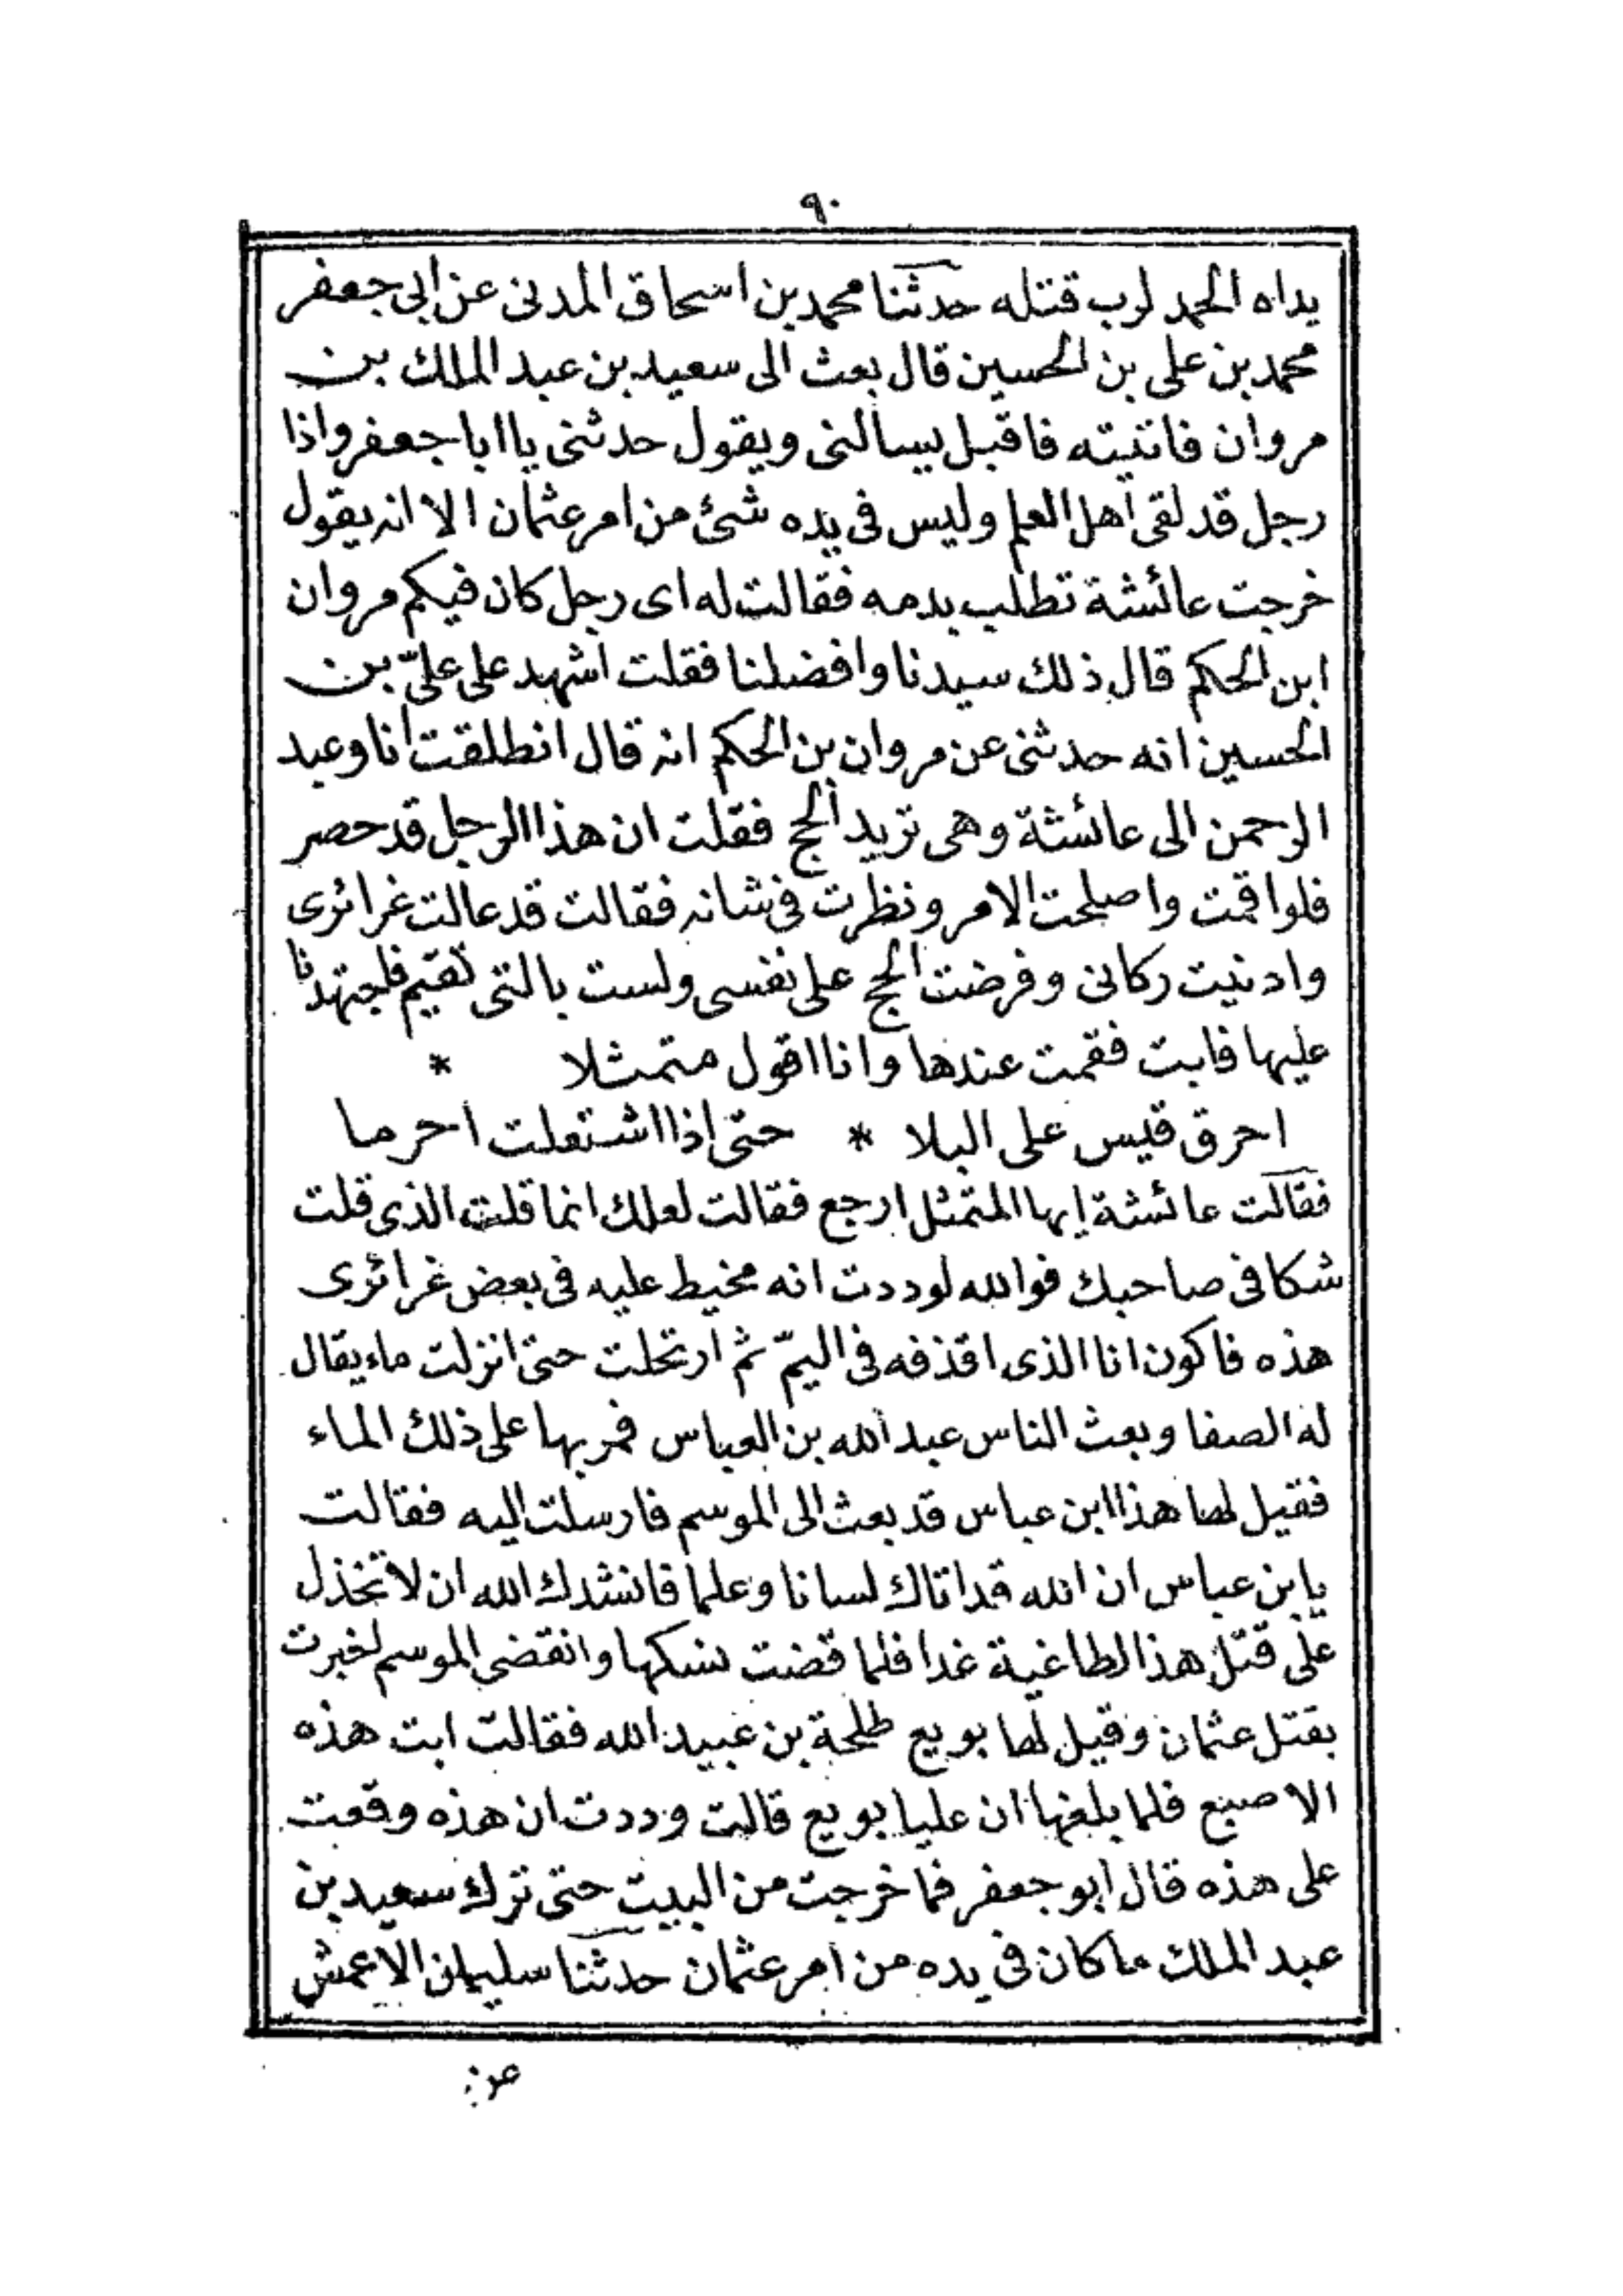 ٩٠
يداه الحمد لرب قتله حدثنا محمد بن اسحاق المدنى عن ابى جعفر
محمد بن على بن الحسين قال بعث الى سعيد بن عبد الملك بن
مروان فاتيته فاقبل يسالنى ويقول حدثنى يا ابا جعفر واذا
رجل قد لقى اهل العلم وليس فى يده شئ من امر عثمان الا انه يقول
خرجت عائشة تطلب بدمه فقالت له اى رجل كان فيكم مروان
ابن الحكم قال ذلك سيدنا وافضلنا فقلت اشهد على علىّ بن
الحسين انه حدثنى عن مروان بن الحكم انه قال انطلقت انا وعبد
الرحمن الى عائشة وهى تريد الحج فقلت ان هذا الرجل قد حصر
فلو اقمت واصلحت الامر ونظرت فى شانه فقالت قد عالت غرائرى
وادنيت ركانى وفرضت الحج على نفسى ولست بالتى تقيم فاجتهدنا
عليها فابت فقمت عندها وانا اقول متمثلا *
احرق قيس على البلا * حتى إذا اشتعلت احرما
فقالت عائشة إيها المتمثل ارجع فقالت لعلك انما قلت الذى قلت
شكا فى صاحبك فوالله لوددت انه مخيط عليه فى بعض غرائرى
هذه فاكون انا الذى اقذفه فى اليمّ ثم ارتحلت حتى انزلت ماء يقال
له الصفا وبعث الناس عبد الله بن العباس فمر بها على ذلك الماء
فقيل لها هذا ابن عباس قد بعث الى الموسم فارسلت اليه فقالت
يا بن عباس ان الله قد اتاك لسانا وعلما فانشدك الله ان لا تخذل
على قتل هذا الطاغية غدا فلما قضت نسكها وانقضى الموسم لخبرت
بقتل عثمان وقيل لها بويع طلحة بن عبيد الله فقالت ابت هذه
الاصبع فلما بلغها ان عليا بويع قالت وددت ان هذه وقعت
على هذه قال ابو جعفر فما خرجت من البيت حتى ترك سعيد بن
عبد الملك ما كان فى يده من امر عثمان حدثنا سليمان الاعمش
عن